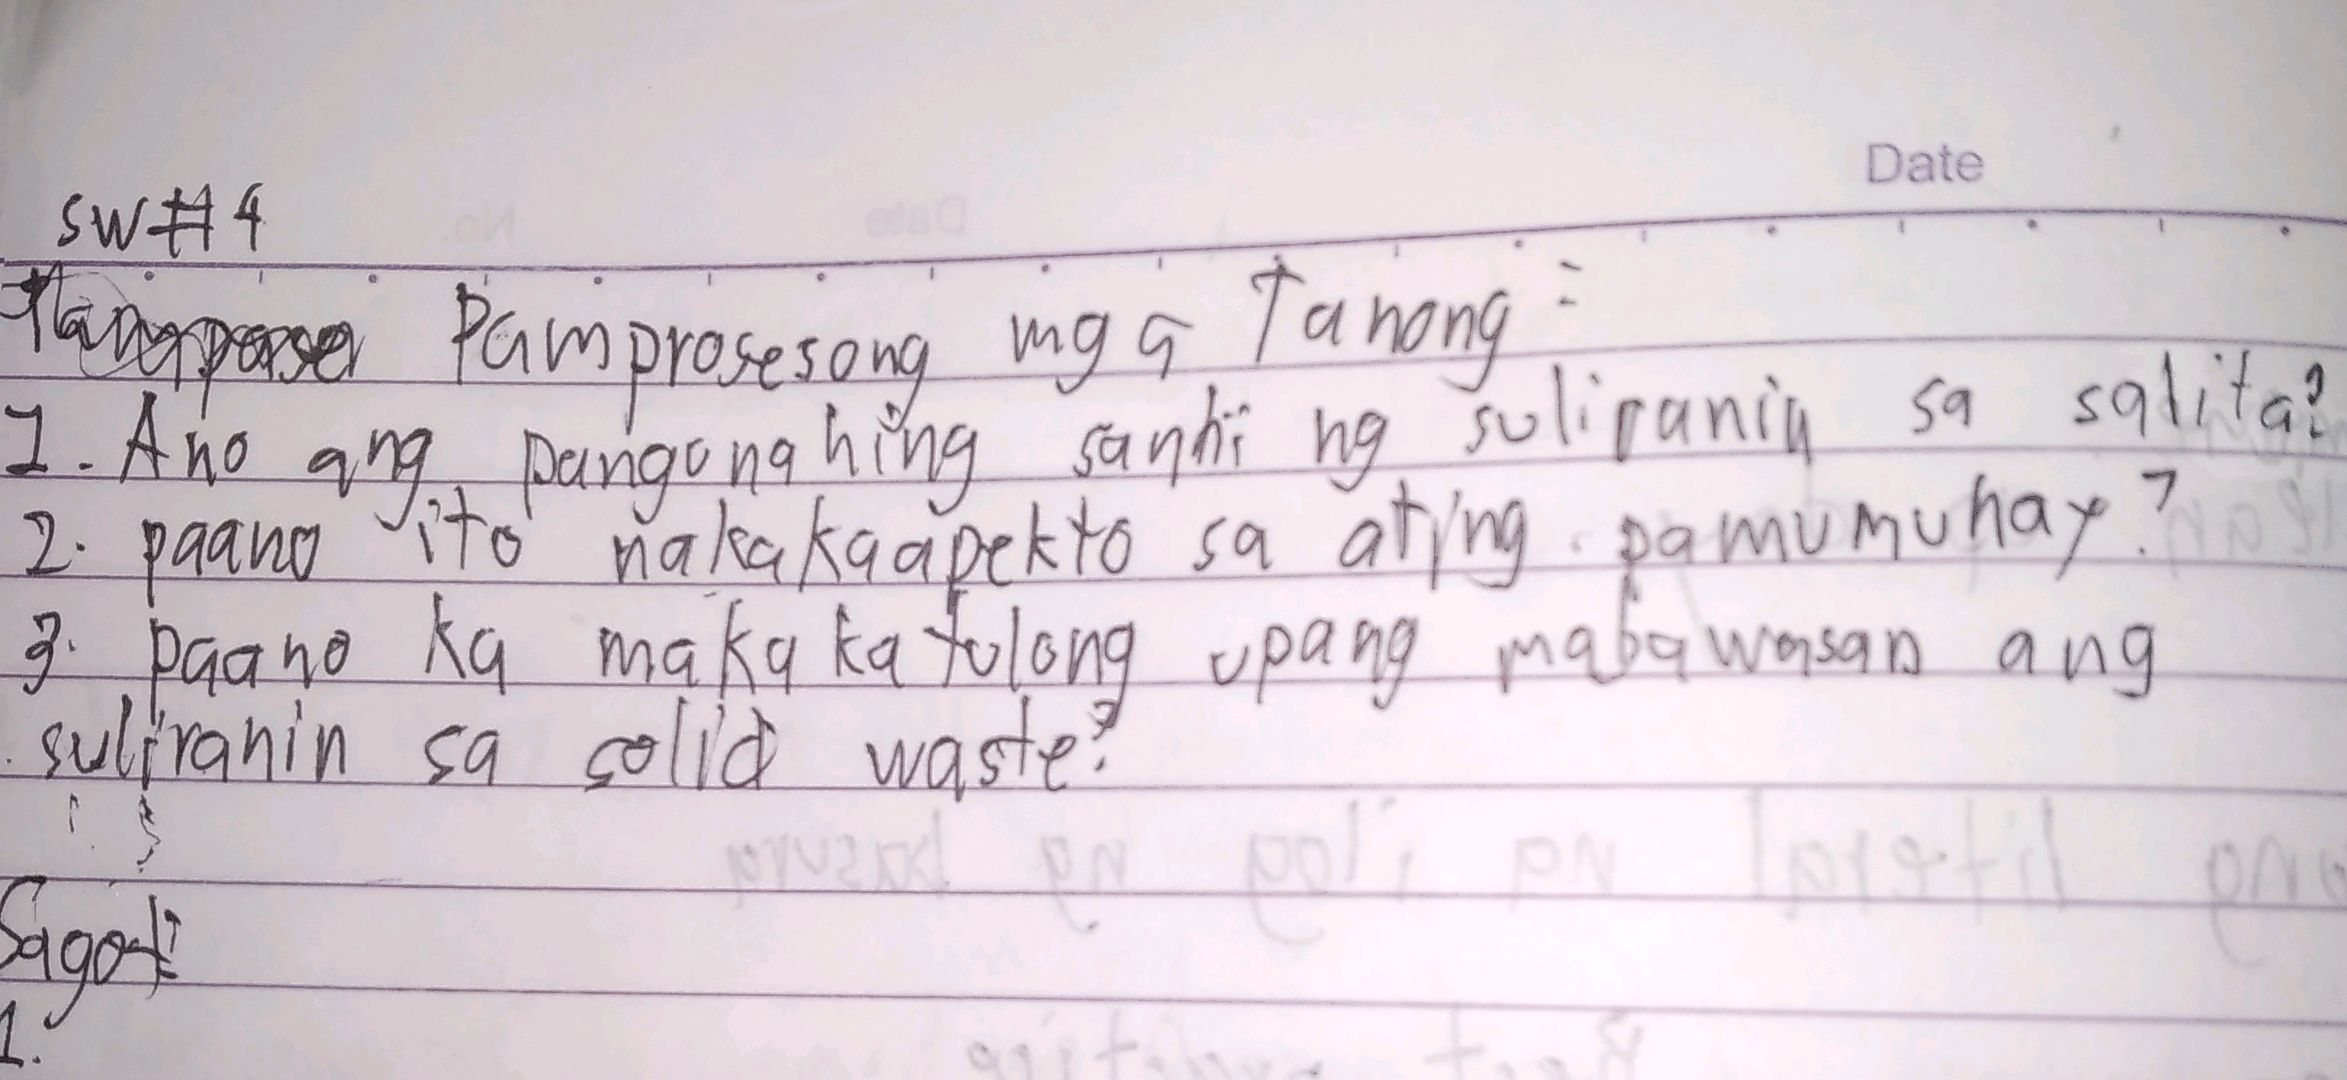 Date
SW#4
Pamprosesong mga Tanong:
1. Ano ang pangunahing sanhi ng suliranin sa salita?
2. paano ito nakakaapekto sa ating pamumuhay?
3. paano ka makakatulong upang mabawasan ang
suliranin sa solid waste?
Sagot:
1.